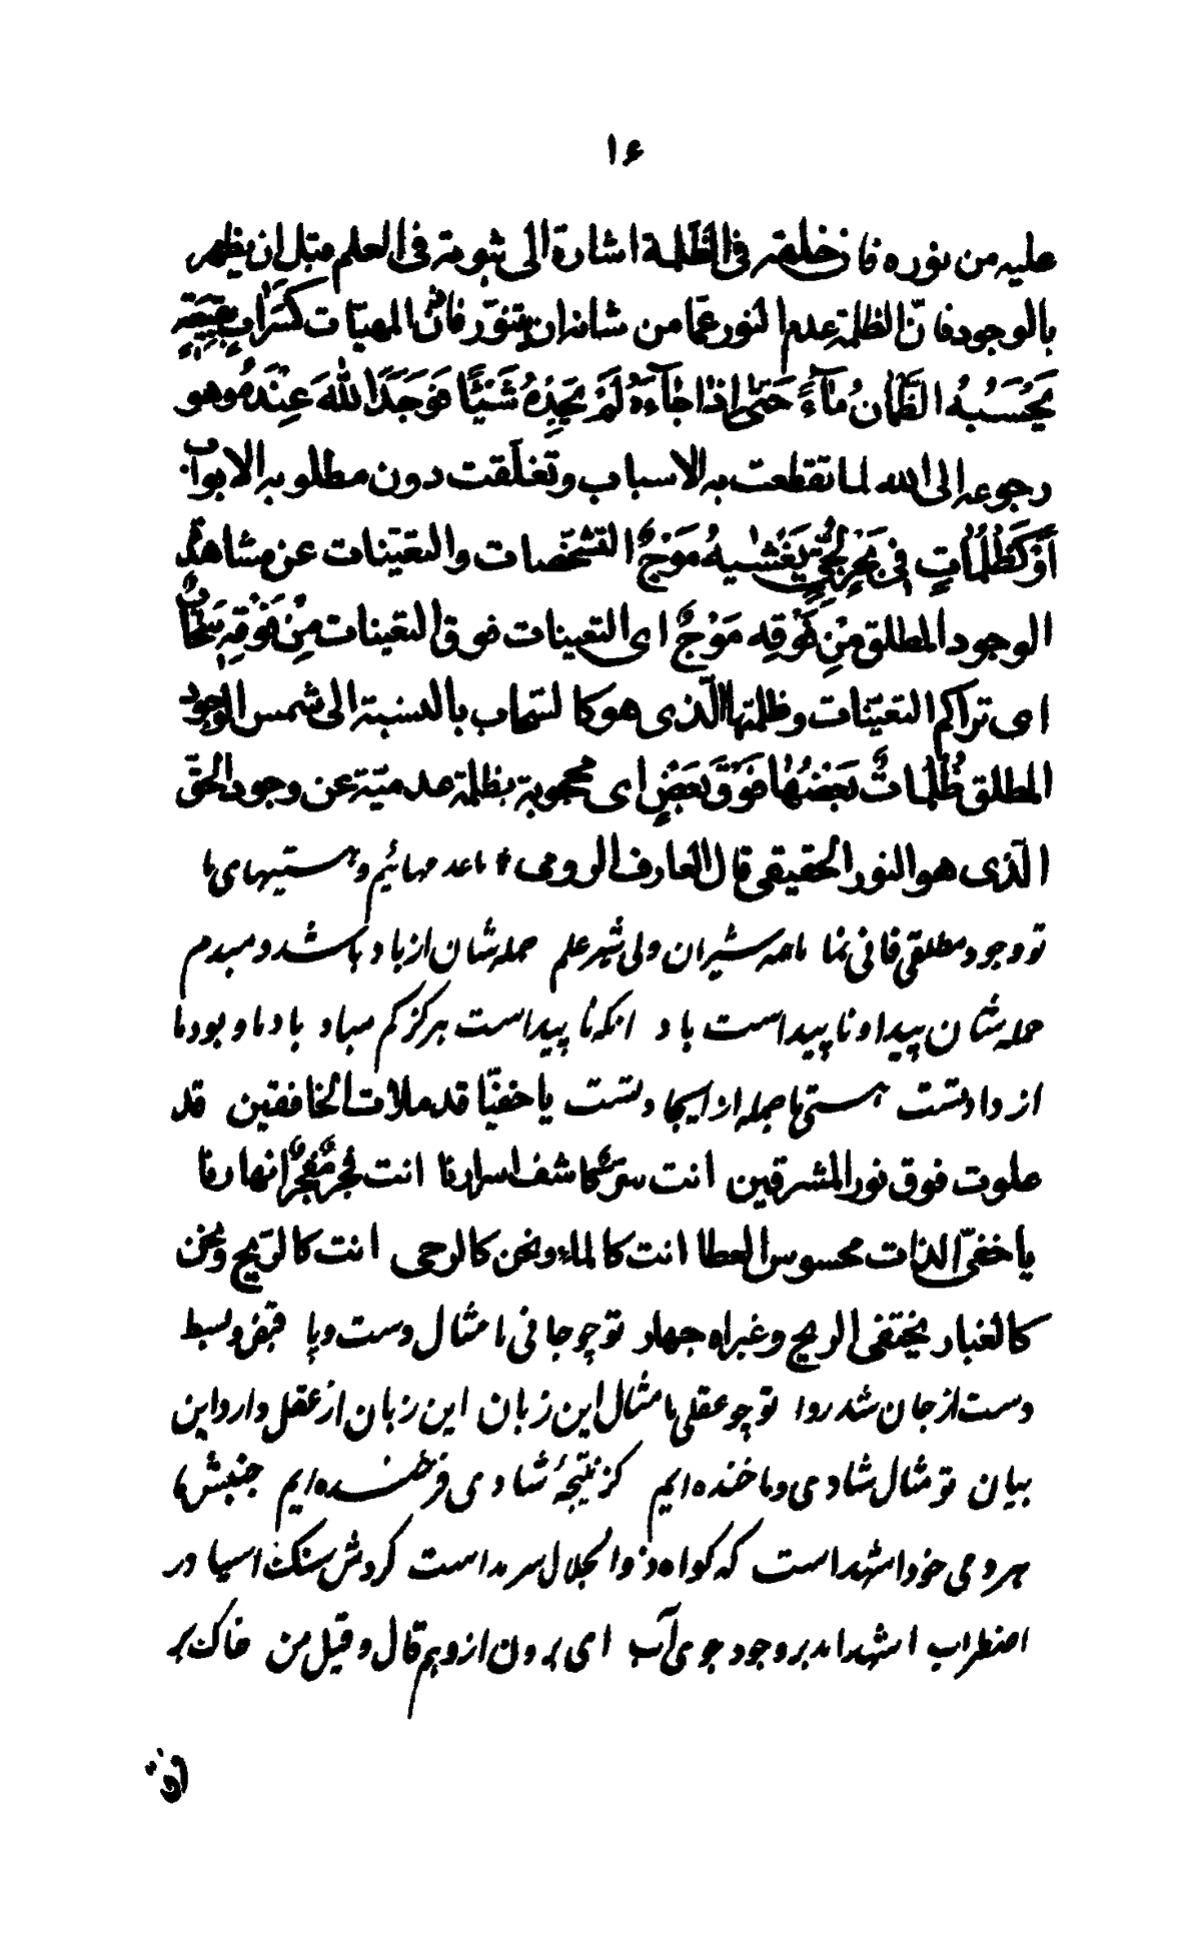 ۱۶
علیه من نوره فان خلقه فی الظلمة اشارة الی ثبوته فی العلم قبل ان یظهر
بالوجود فانّ الظلمة عدم النور عمّا من شانه ان یتنوّر فانّ المهیّات کَسَرَابٍ بِقِیعَةٍ
یَحْسَبُهُ الظَّمْاٰنُ مٰآءً حَتّٰی اِذٰا جٰآءَهُ لَمْ یَجِدْهُ شَیْئًا فَوَجَدَ اللّٰهَ عِنْدَهُ وهو
رجوعه الی الله لما تقطعت به الاسباب وتغلّقت دون مطلوبه الابواب
اَوْ کَظُلُمٰاتٍ فِی بَحْرٍ لُجِّیٍّ یَغْشٰیهُ مَوْجٌ التشخّصات والتعیّنات عن مشاهدة
الوجود المطلق مِنْ فَوْقِهِ مَوْجٌ ای التعینات فوق التعینات مِنْ فَوْقِهِ سَحٰابٌ
ای تراکم التعیّنات وظلمتها الّذی هو کالسّحاب بالنسبة الی شمس الوجود
المطلق ظُلُمٰاتٌ بَعْضُهٰا فَوْقَ بَعْضٍ ای محجوبة بظلمة عدمیّة عن وجود الحقّ
الّذی هو النور الحقیقی قال العارف الرومی * ما عدمهائیم وهستیهای ما
تو وجود مطلقی فانی نما ما همه شیران ولی شیر علم حمله‌شان از باد باشد دمبدم
حمله‌شان پیدا و ناپیداست باد انکه ناپیداست هرکز کم مباد باد ما و بود ما
از داد تست هستی ما جمله از ایجاد تست یا خفیّا قد ملات الخافقین قد
علوت فوق نور المشرقین انت سرّ کاشف اسرارنا انت فجر مفجر انهارنا
یا خفیّ الذات محسوس العطا انت کالماء ونحن کالرحی انت کالرّیح ونحن
کالغبار یختفی الریح وغبراه جهار تو چو جانی ما مثال دست و پا قبض وبسط
دست از جان شد روا تو چو عقلی ما مثال این زبان این زبان از عقل دارد این
بیان تو مثال شادی و ما خنده‌ایم کز نتیجهٔ شادی فرخنده‌ایم جنبش ما
هر دمی خود اشهد است که کواه ذو الجلال سرمد است کردش سنک اسیا در
اضطراب اشهد امد بر وجود جوی آب ای برون از وهم قال و قیل من خاک بر